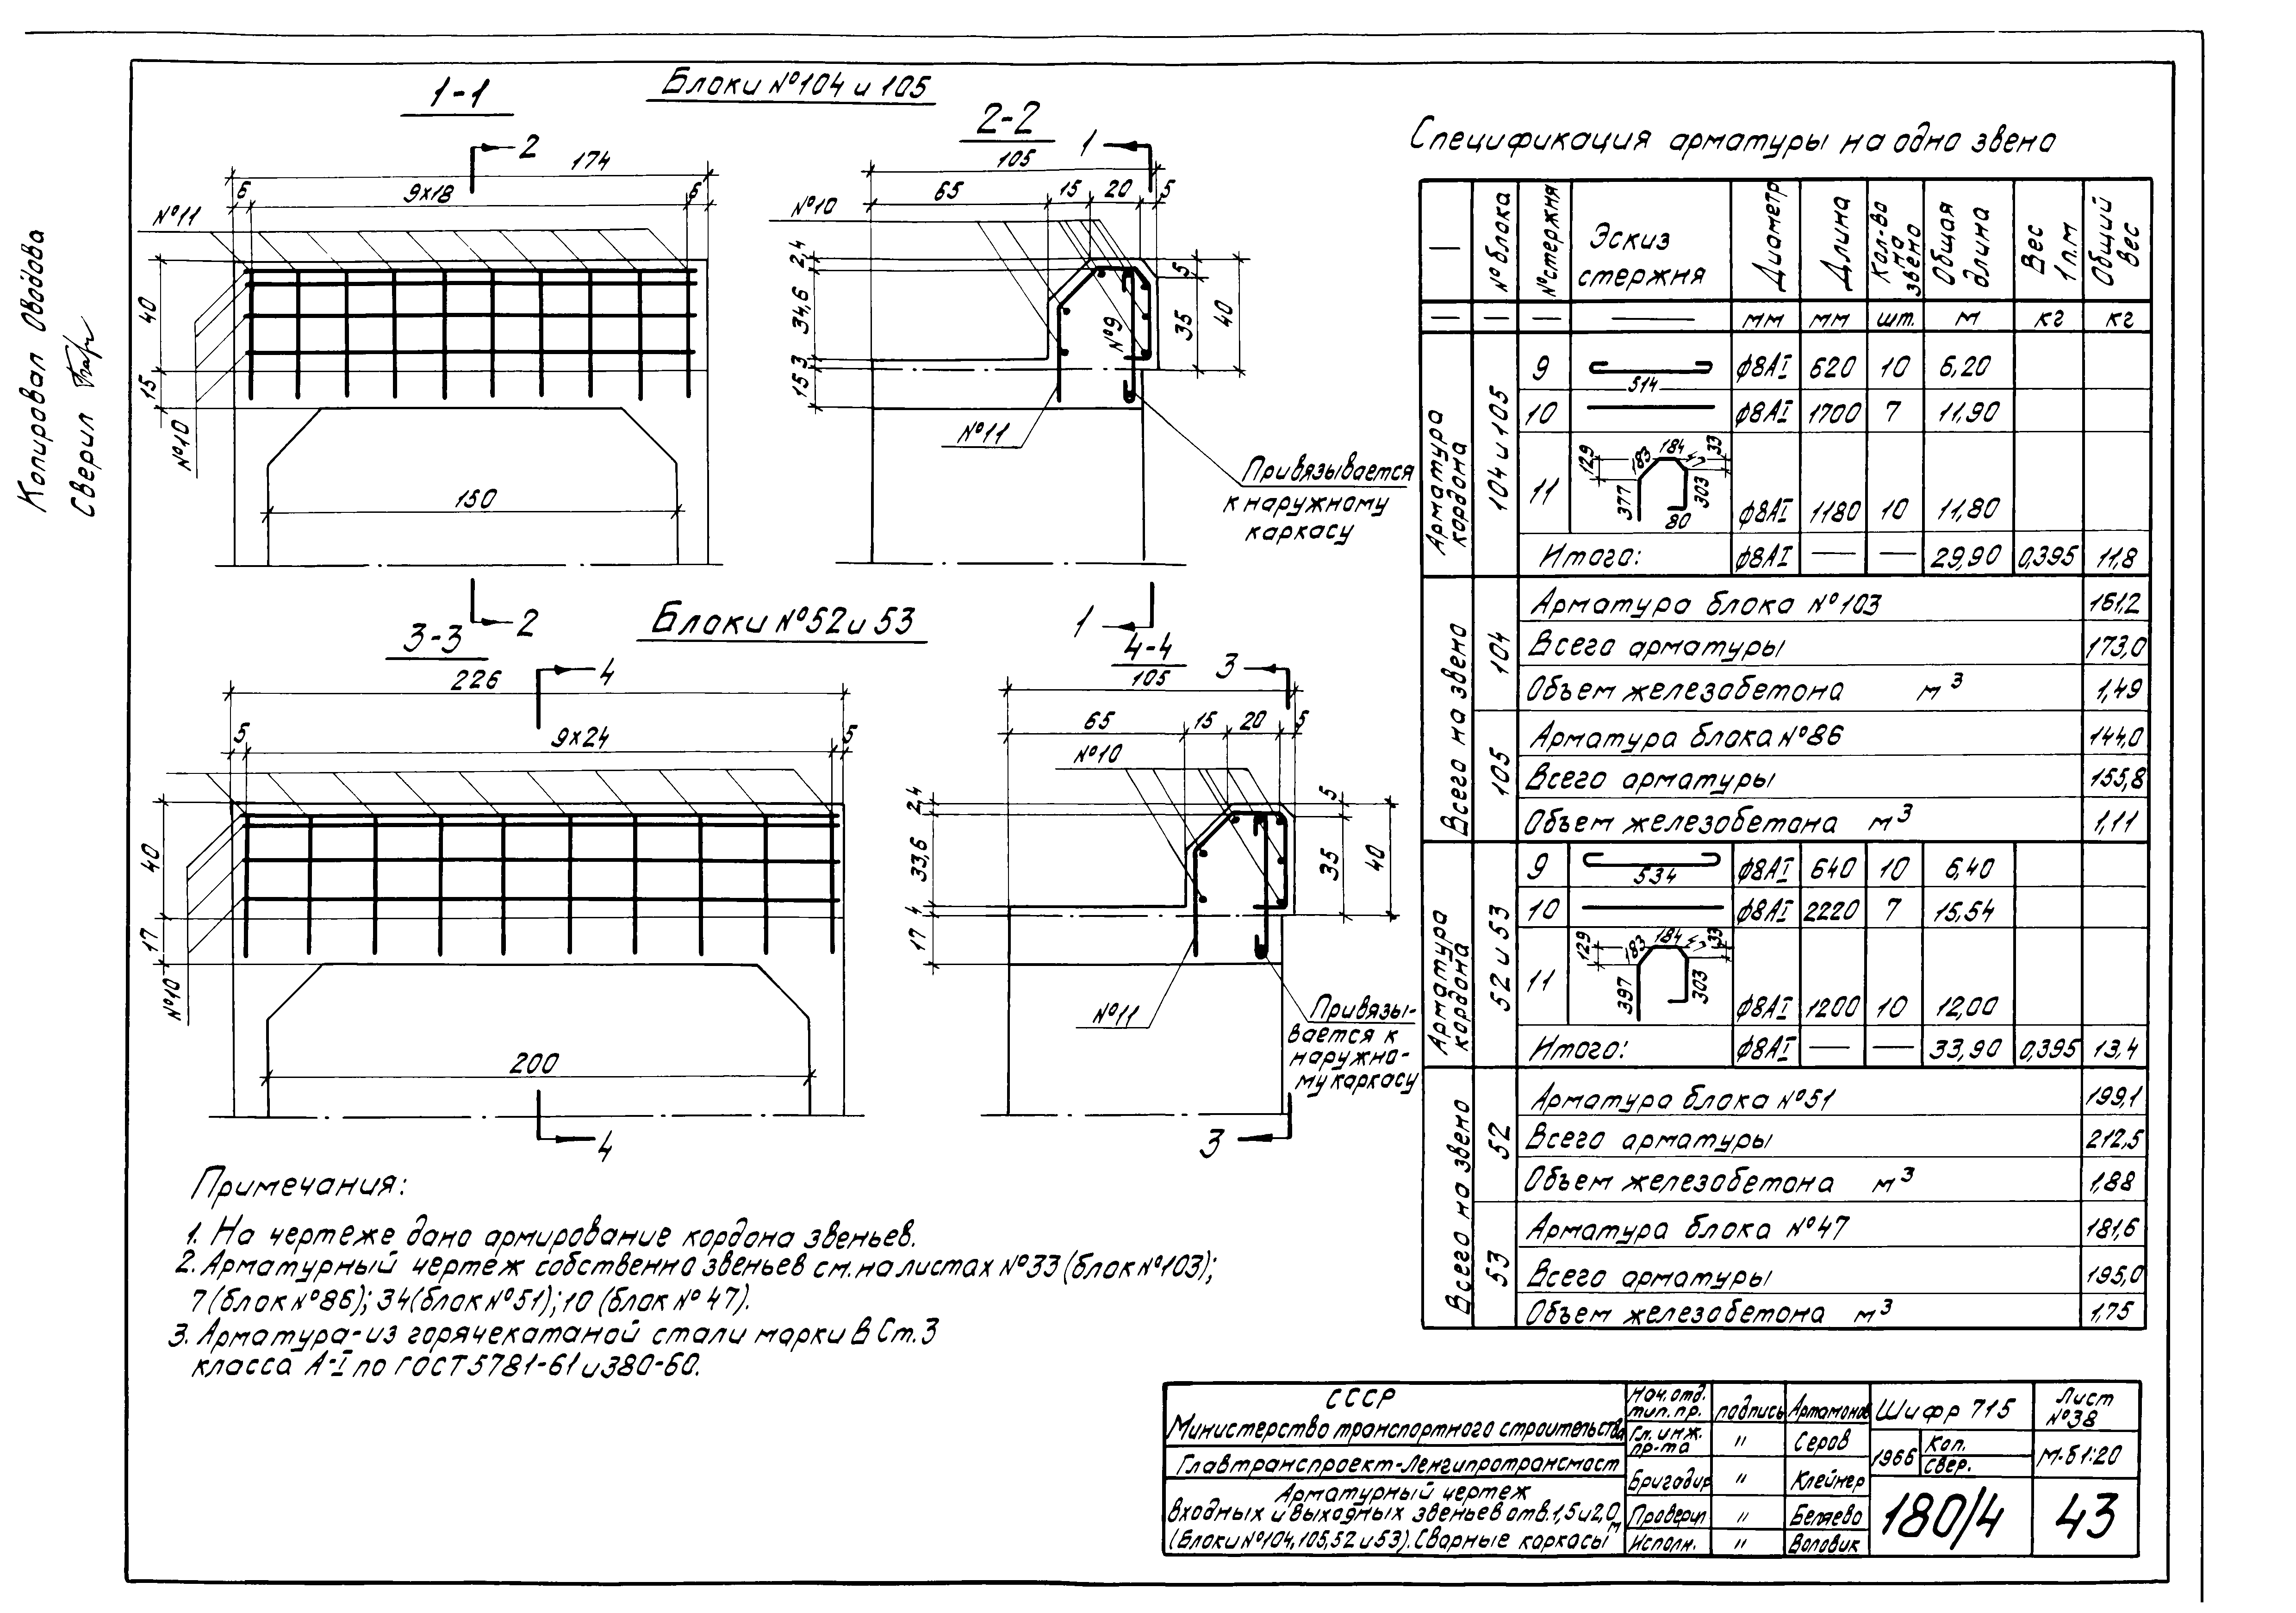 Копировал Овойова
Сверил
Блоки №104 и 105
1-1
2
174
6
9×18
6
№11
40
15
№10
150
2
2-2
1
105
65
15
20
5
№10
2,4
34,6
3
15
5
35
40
№9
№11
Привязывается
к наружному
каркасу
1
Блоки №52 и 53
3-3
226
4
5
9×24
5
40
17
№10
200
4
4-4
3
105
65
15
20
5
№10
2,4
33,6
4
17
5
35
40
№11
Привязы-
вается к
наружно-
му каркасу
3
Примечания:
1. На чертеже дано армирование кордона звеньев.
2. Арматурный чертеж собственно звеньев см. на листах №33 (блок №103);
7 (блок №86); 34 (блок №51); 10 (блок №47).
3. Арматура-из горячекатаной стали марки В Ст.3
класса А-I по ГОСТ 5781-61 и 380-60.
Спецификация арматуры на одно звено
— № блока №стержня Эскиз стержня Диаметр Длина Кол-во на звено Общая длина Вес 1п.м Общий вес
— — — — мм мм шт. м кг кг
Арматура кордона 104 и 105
9 514 ф8АI 620 10 6,20
10 ф8АI 1700 7 11,90
11 129 183 184 47 33 377 303 80 ф8АI 1180 10 11,80
Итого: ф8АI — — 29,90 0,395 11,8
Всего на звено
104 Арматура блока №103 161,2
Всего арматуры 173,0
Объем железобетона м³ 1,49
105 Арматура блока №86 144,0
Всего арматуры 155,8
Объем железобетона м³ 1,11
Арматура кордона 52 и 53
9 534 ф8АI 640 10 6,40
10 ф8АI 2220 7 15,54
11 129 183 184 47 33 397 303 ф8АI 1200 10 12,00
Итого: ф8АI — — 33,90 0,395 13,4
Всего на звено
52 Арматура блока №51 199,1
Всего арматуры 212,5
Объем железобетона м³ 1,88
53 Арматура блока №47 181,6
Всего арматуры 195,0
Объем железобетона м³ 1,75
СССР
Министерство транспортного строительства
Главтранспроект-Ленгипротрансмост
Арматурный чертеж
входных и выходных звеньев отв.1,5 и 2,0 м
(Блоки №104,105,52 и 53). Сварные каркасы
Нач. отд. тип. пр. подпись Артамонов
Гл. инж. пр-та " Серов
Бригадир " Клейнер
Проверил " Беляева
Исполн. " Воловик
Шифр 715
Лист №38
1966 Коп. Свер.
М-Б 1:20
180/4
43